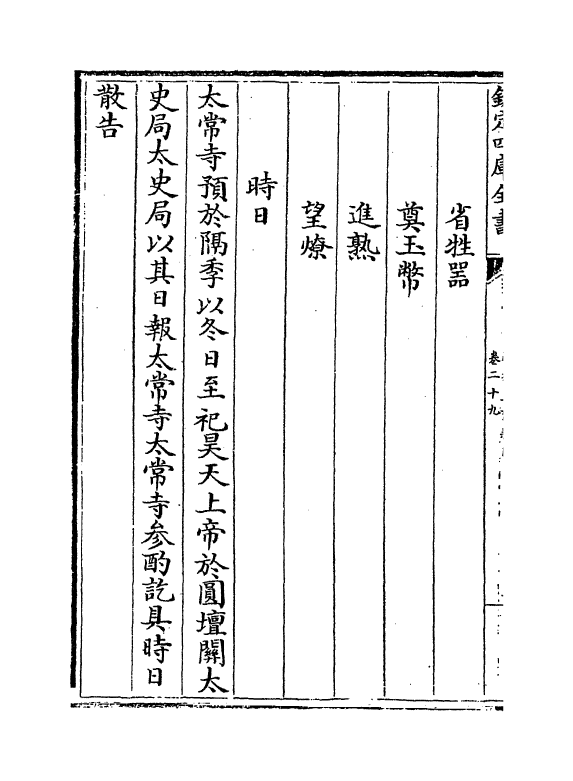 欽定四庫全書
卷二十九
省牲器
奠玉幣
進熟
望燎
時日
太常寺預於隔季以冬日至祀昊天上帝於圓壇關太
史局太史局以其日報太常寺太常寺參酌訖具時日
散告